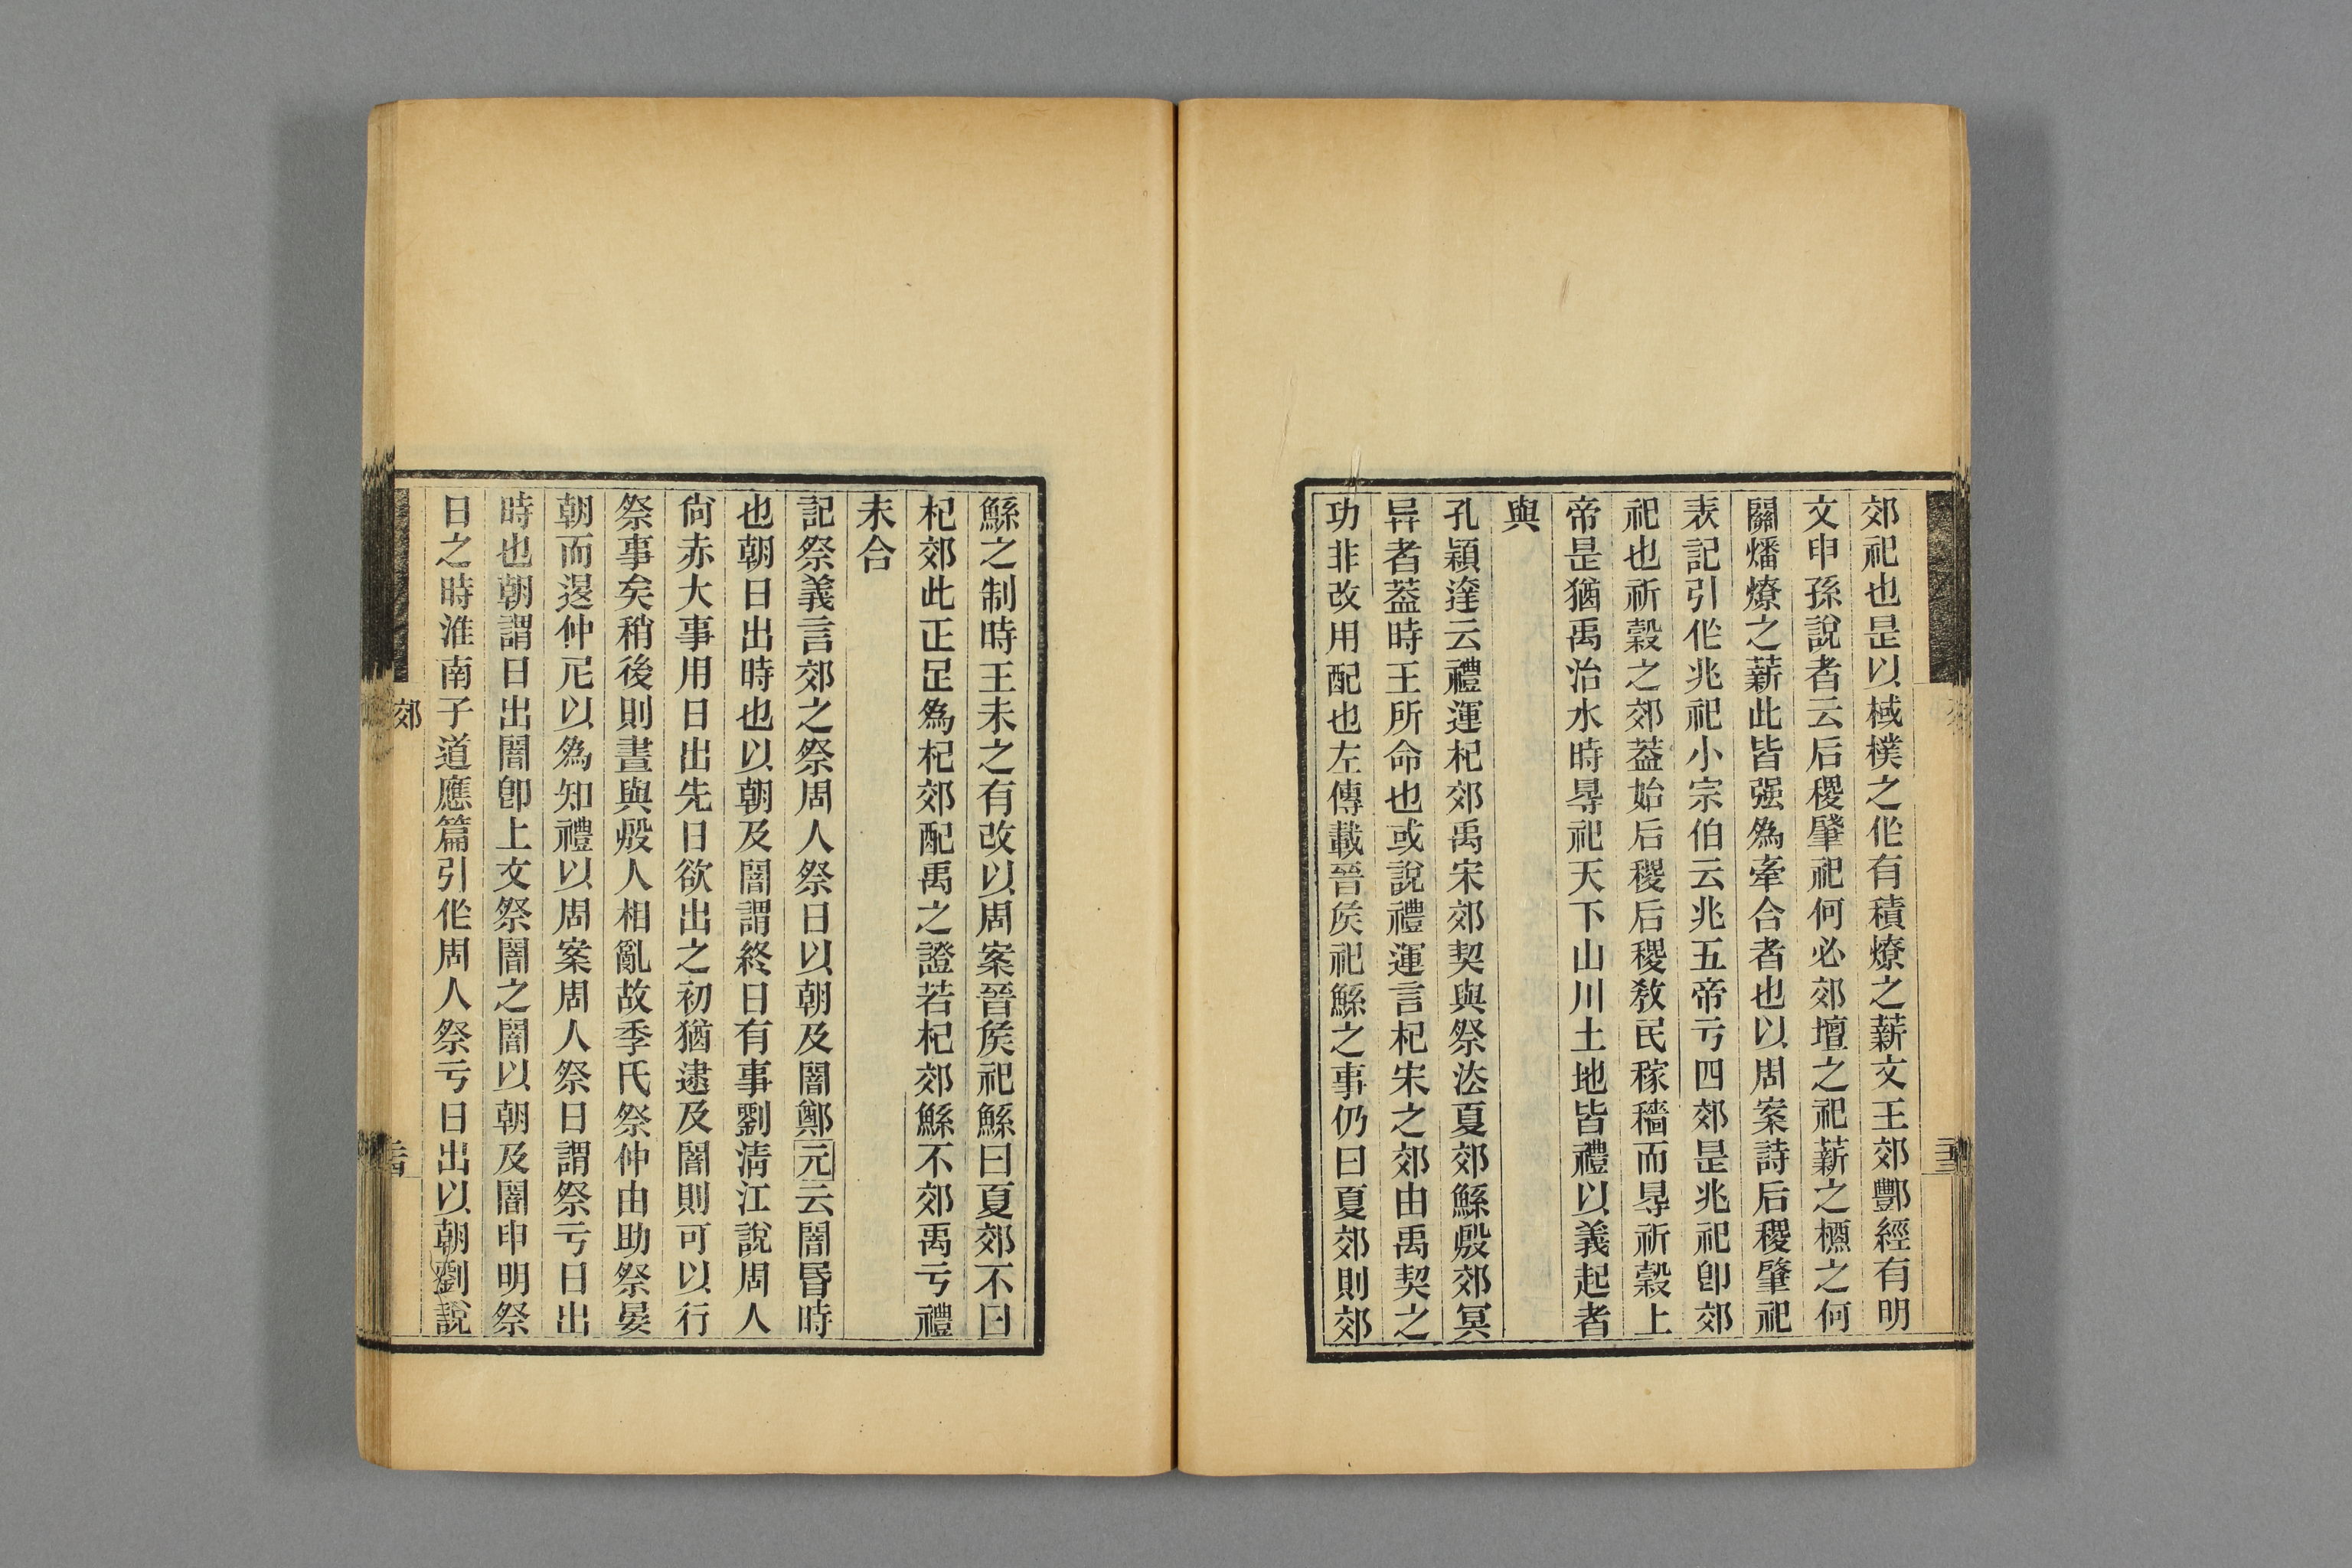 郊祀也是以棫樸之作有積燎之薪文王郊酆經有明
文申孫說者云后稷肇祀何必郊壇之祀薪之槱之何
關燔燎之薪此皆强爲牽合者也以周案詩后稷肇祀
表記引作兆祀小宗伯云兆五帝亏四郊是兆祀卽郊
祀也祈穀之郊葢始后稷后稷敎民稼穡而㝵祈穀上
帝是猶禹治水時㝵祀天下山川土地皆禮以義起者
與
孔穎達云禮運杞郊禹宋郊契與祭法夏郊鯀殷郊冥
异者葢時王所命也或說禮運言杞宋之郊由禹契之
功非改用配也左傳載晉矦祀鯀之事仍曰夏郊則郊
鯀之制時王未之有改以周案晉矦祀鯀曰夏郊不曰
杞郊此正足爲杞郊配禹之證若杞郊鯀不郊禹亏禮
未合
記祭義言郊之祭周人祭日以朝及闇鄭元云闇昬時
也朝日出時也以朝及闇謂終日有事劉淸江說周人
尙赤大事用日出先日欲出之初猶逮及闇則可以行
祭事矣稍後則晝與殷人相亂故季氏祭仲由助祭晏
朝而退仲尼以爲知禮以周案周人祭日謂祭亏日出
時也朝謂日出闇卽上文祭闇之闇以朝及闇申明祭
日之時淮南子道應篇引作周人祭亏日出以朝劉說
郊